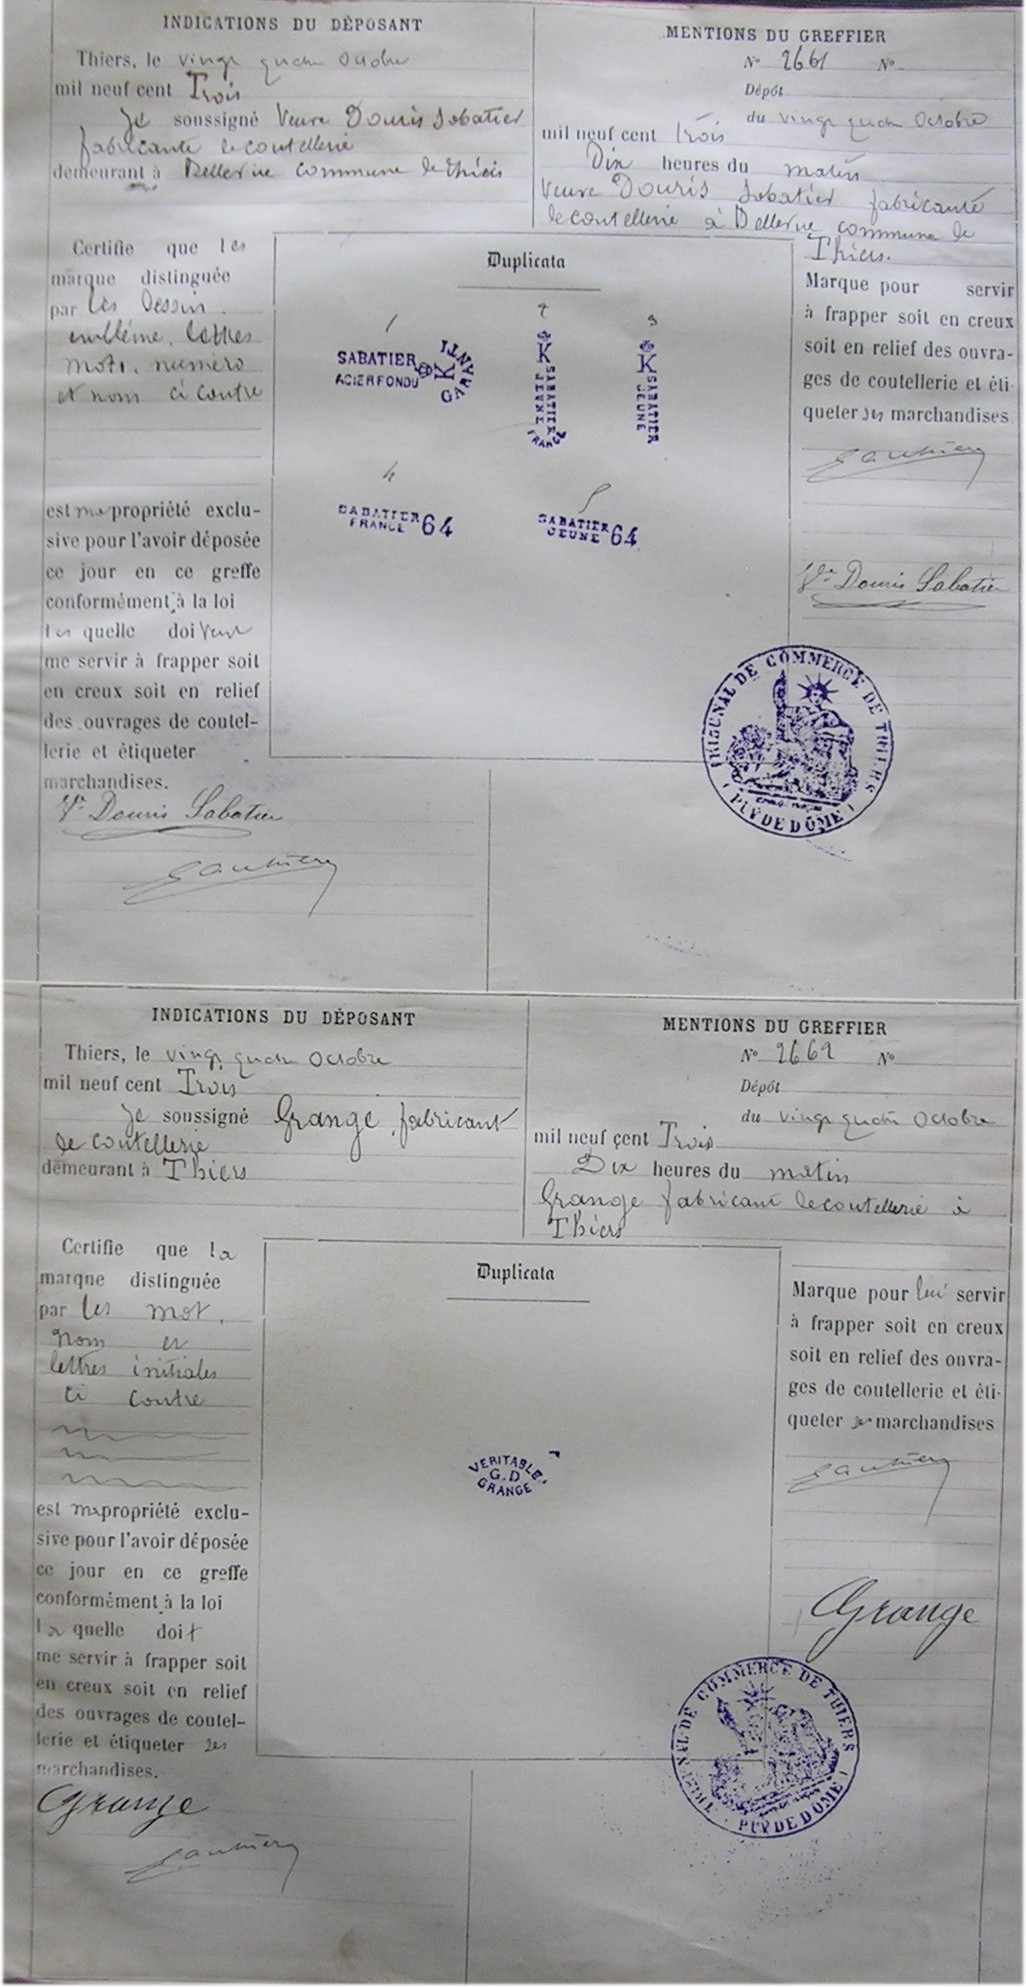 INDICATIONS DU DÉPOSANT
Thiers, le vingt quatre Octobre
mil neuf cent Trois
Je soussigné Veuve Douris Sabatier
fabricante de coutellerie
demeurant à Bellevue commune de Thiers
MENTIONS DU GREFFIER
N° 2661 N°
Dépôt
du vingt quatre Octobre
mil neuf cent trois
Dix heures du matin
Veuve Douris Sabatier fabricante
de coutellerie à Bellevue commune de
Thiers.
Certifie que les
marque distinguée
par les dessin.
emblème, lettres
mots. numéro
et noms ci contre
est ma propriété exclu-
sive pour l'avoir déposée
ce jour en ce greffe
conformément à la loi
les quelle doivent
me servir à frapper soit
en creux soit en relief
des ouvrages de coutel-
lerie et étiqueter
marchandises.
Vve Douris Sabatier
Duplicata
1
SABATIER
ACIER FONDU
K
GARANTI
2
K
SABATIER
JEUNE
FRANCE
3
K
SABATIER
JEUNE
4
SABATIER
FRANCE 64
5
SABATIER
JEUNE 64
Marque pour servir
à frapper soit en creux
soit en relief des ouvra-
ges de coutellerie et éti-
queter ses marchandises
Vve Douris Sabatier
TRIBUNAL DE COMMERCE DE THIERS
PUY DE DÔME
INDICATIONS DU DÉPOSANT
Thiers, le vingt quatre Octobre
mil neuf cent Trois
Je soussigné Grange fabricant
de coutellerie
demeurant à Thiers
MENTIONS DU GREFFIER
N° 2662 N°
Dépôt
du vingt quatre Octobre
mil neuf cent Trois
Dix heures du matin
Grange fabricant de coutellerie à
Thiers
Certifie que la
marque distinguée
par les mot,
nom et
lettres initiales
ci contre
est ma propriété exclu-
sive pour l'avoir déposée
ce jour en ce greffe
conformément à la loi
la quelle doit
me servir à frapper soit
en creux soit en relief
des ouvrages de coutel-
lerie et étiqueter ses
marchandises.
Grange
Duplicata
VERITABLE
G.D
GRANGE
Marque pour lui servir
à frapper soit en creux
soit en relief des ouvra-
ges de coutellerie et éti-
queter ses marchandises
Grange
TRIBUNAL DE COMMERCE DE THIERS
PUY DE DÔME